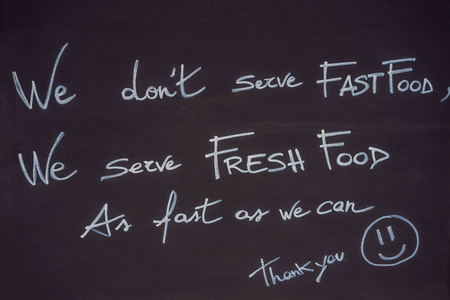 We don't serve FASTFOOD,
We serve FRESH FOOD
As fast as we can
Thank you